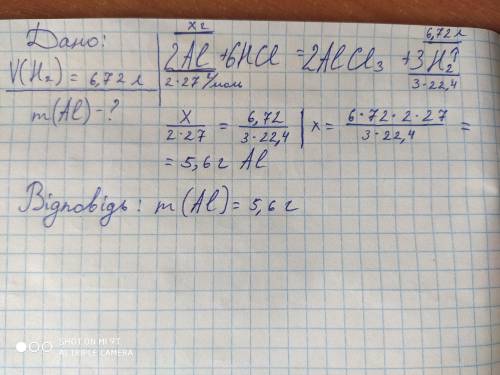 Дано:
V(H₂) = 6,72 л
m(Al) - ?
x г 6,72 л
2Al + 6HCl = 2AlCl₃ + 3H₂↑
2·27 г/моль 3·22,4
x/2·27 = 6,72/3·22,4 | x = 6·72·2·27/3·22,4 =
= 5,6 г Al
Відповідь: m(Al) = 5,6 г
SHOT ON MI 9T
AI TRIPLE CAMERA